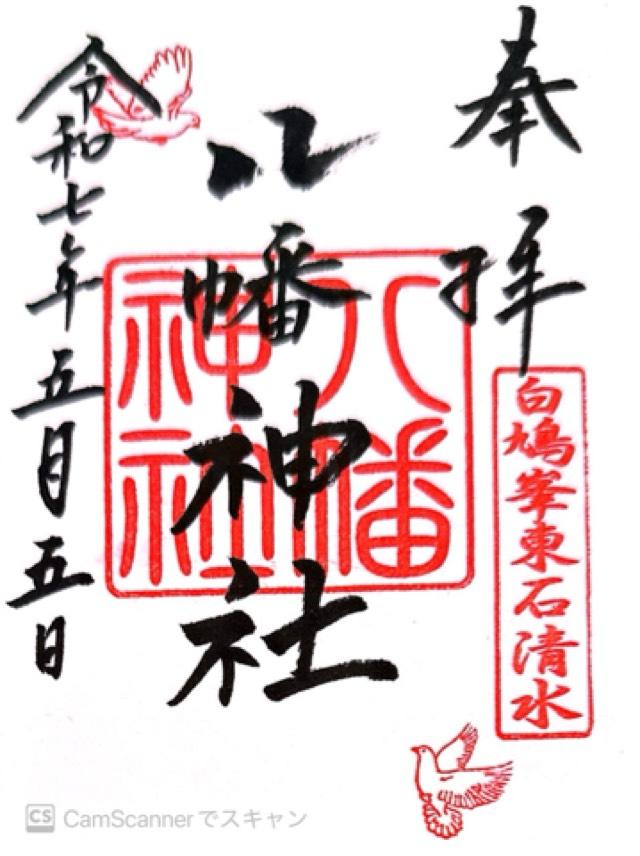 奉拝
白鳩峯東石清水
八幡神社
八幡神社
令和七年五月五日
CS CamScannerでスキャン